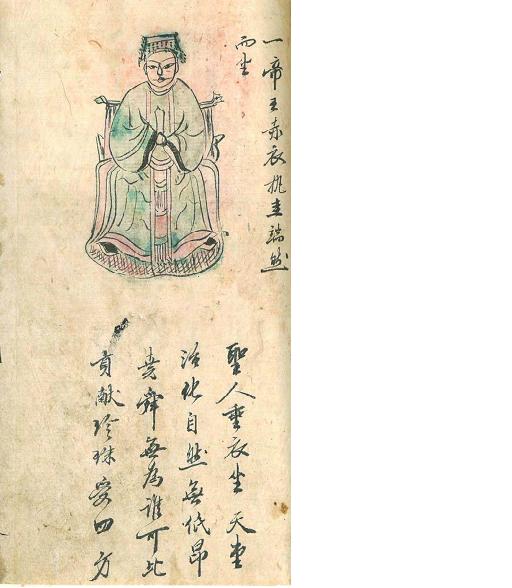 一帝王赤衣执圭端然
而坐
聖人垂衣坐天堂
治化自然無低昂
尭舜無為誰可比
貢献珍珠四方